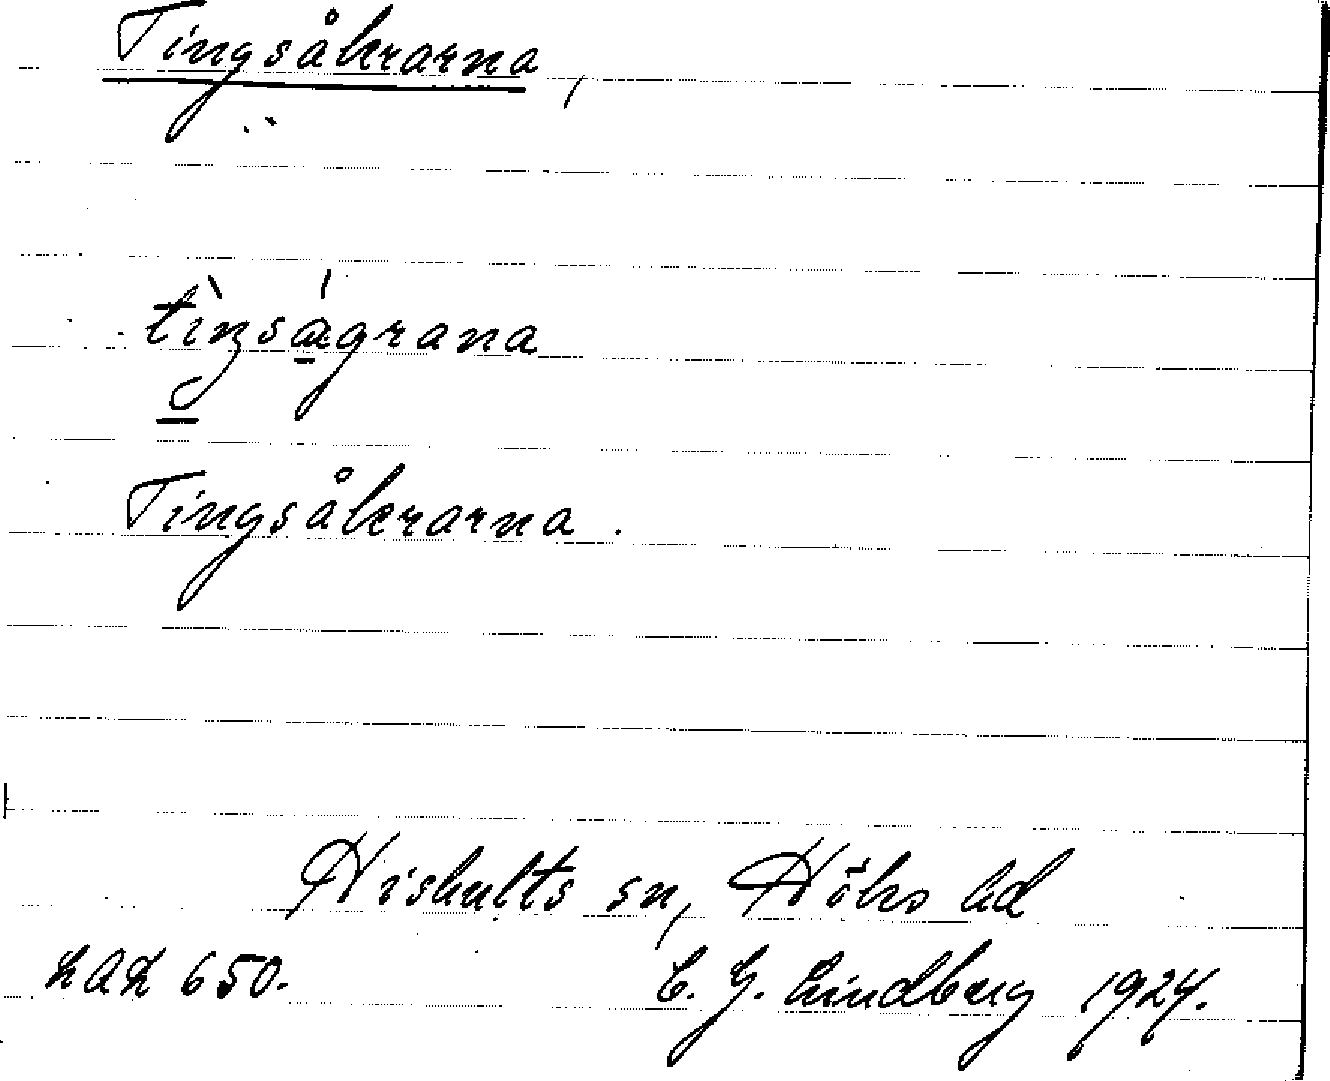 Tingsåkrarna,
tìŋságrana
Tingsåkrarna.
Hishults sn, Höks hd
LAL 650.
C. G. Lindberg 1924.